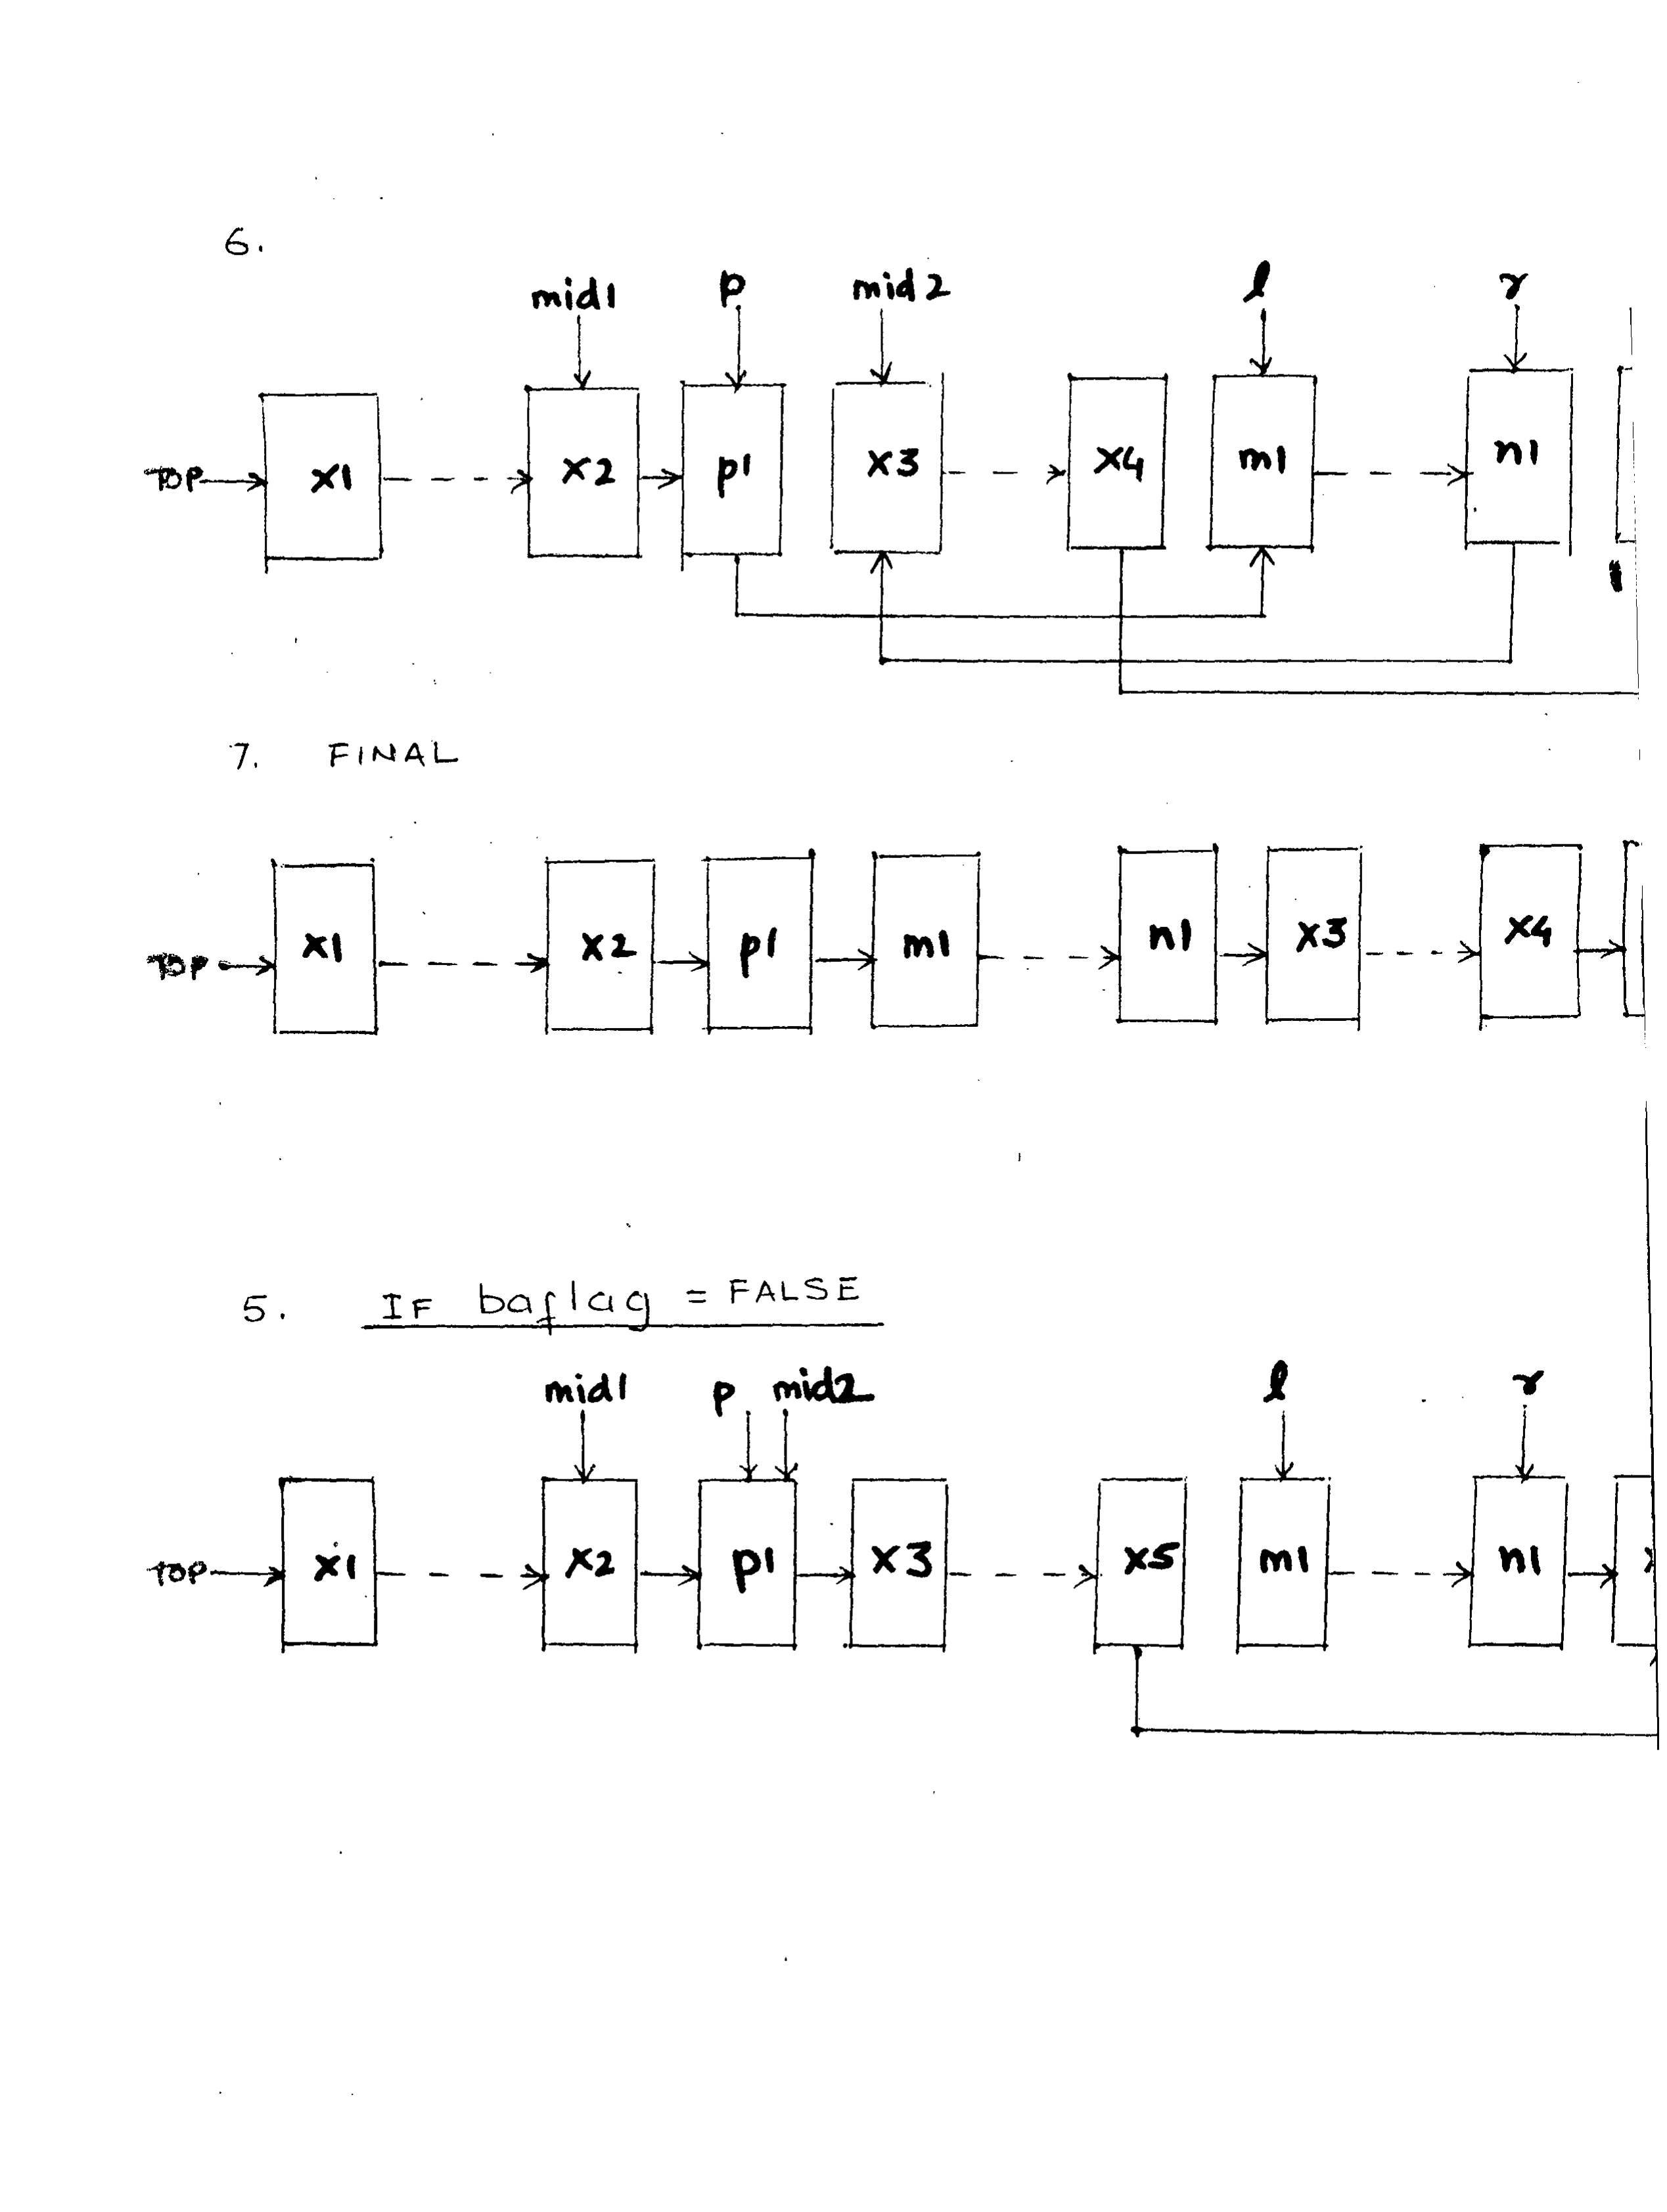 6.
mid1 p mid2 l r
TOP x1 x2 p1 x3 x4 m1 n1
7. FINAL
TOP x1 x2 p1 m1 n1 x3 x4
5. IF baflag = FALSE
mid1 p mid2 l r
TOP x1 x2 p1 x3 x5 m1 n1